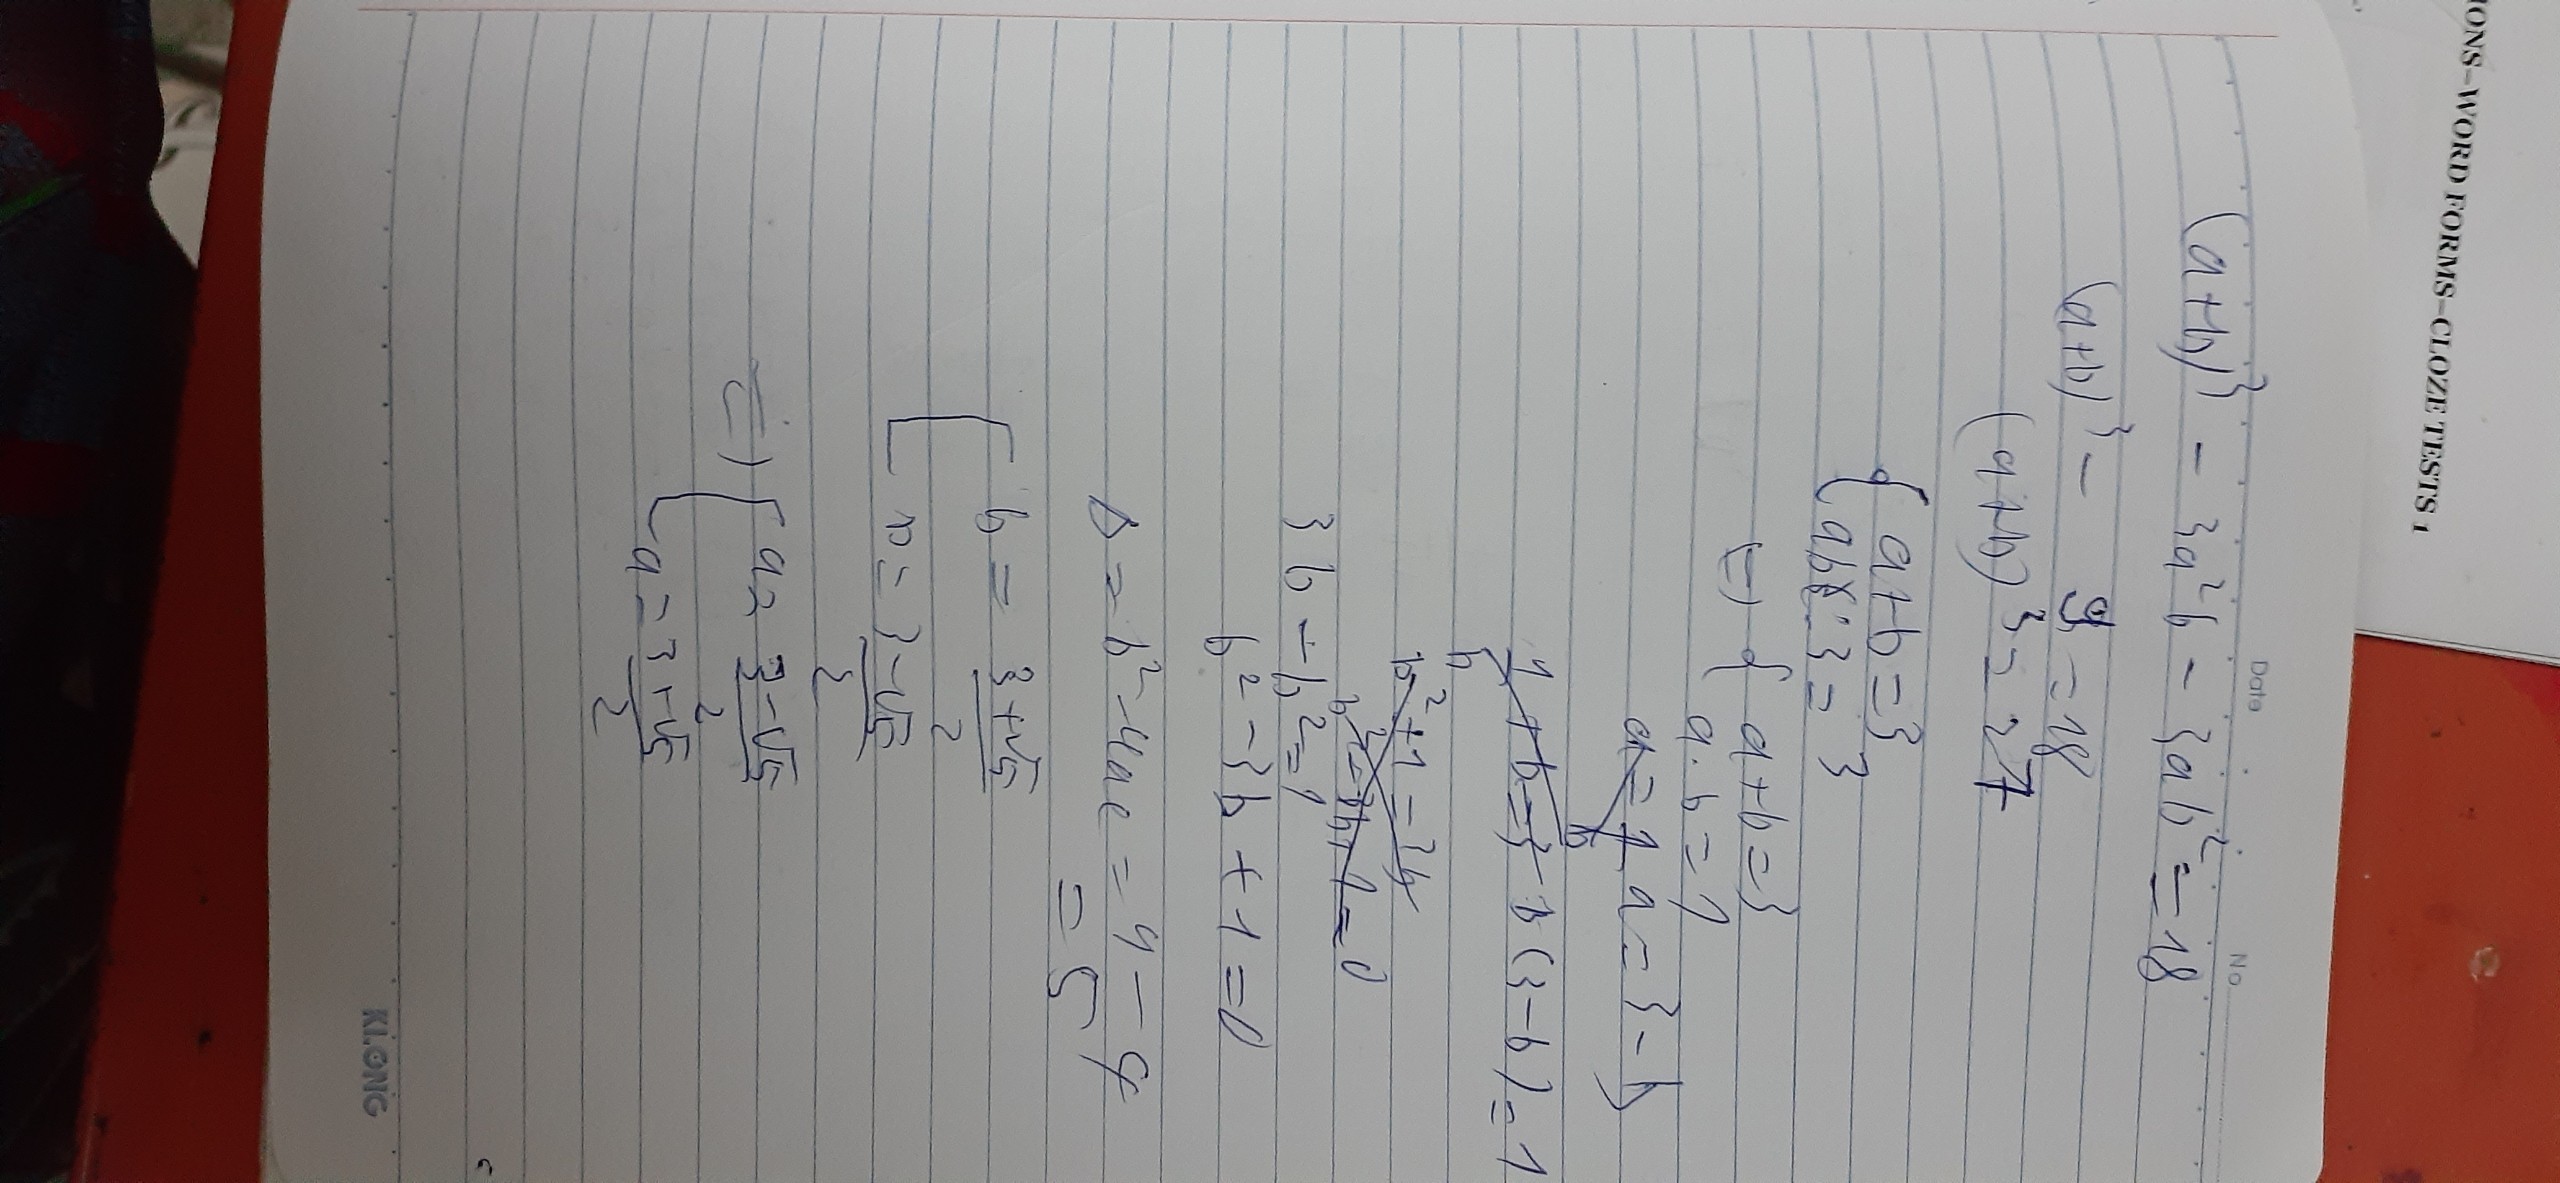 IONS-WORD FORMS-CLOZE TESTS 1
Date No
(a+b)³ - 3a²b - 3ab² = 18
(a+b)³ - 9 = 18
(a+b)³ = 27
{ a+b = 3
{ ab·3 = 3
⇔ { a+b = 3
a.b = 1
a = 1/b a = 3-b
1/b + b = 3 b(3-b) = 1
b²+1 = 3b
b²-3b+1 = 0
3b - b² = 1
b² - 3b + 1 = 0
Δ = b² - 4ac = 9 - 4
= 5
[ b = (3+√5)/2
[ b = (3-√5)/2
⇒ [ a = (3-√5)/2
[ a = (3+√5)/2
KLONG